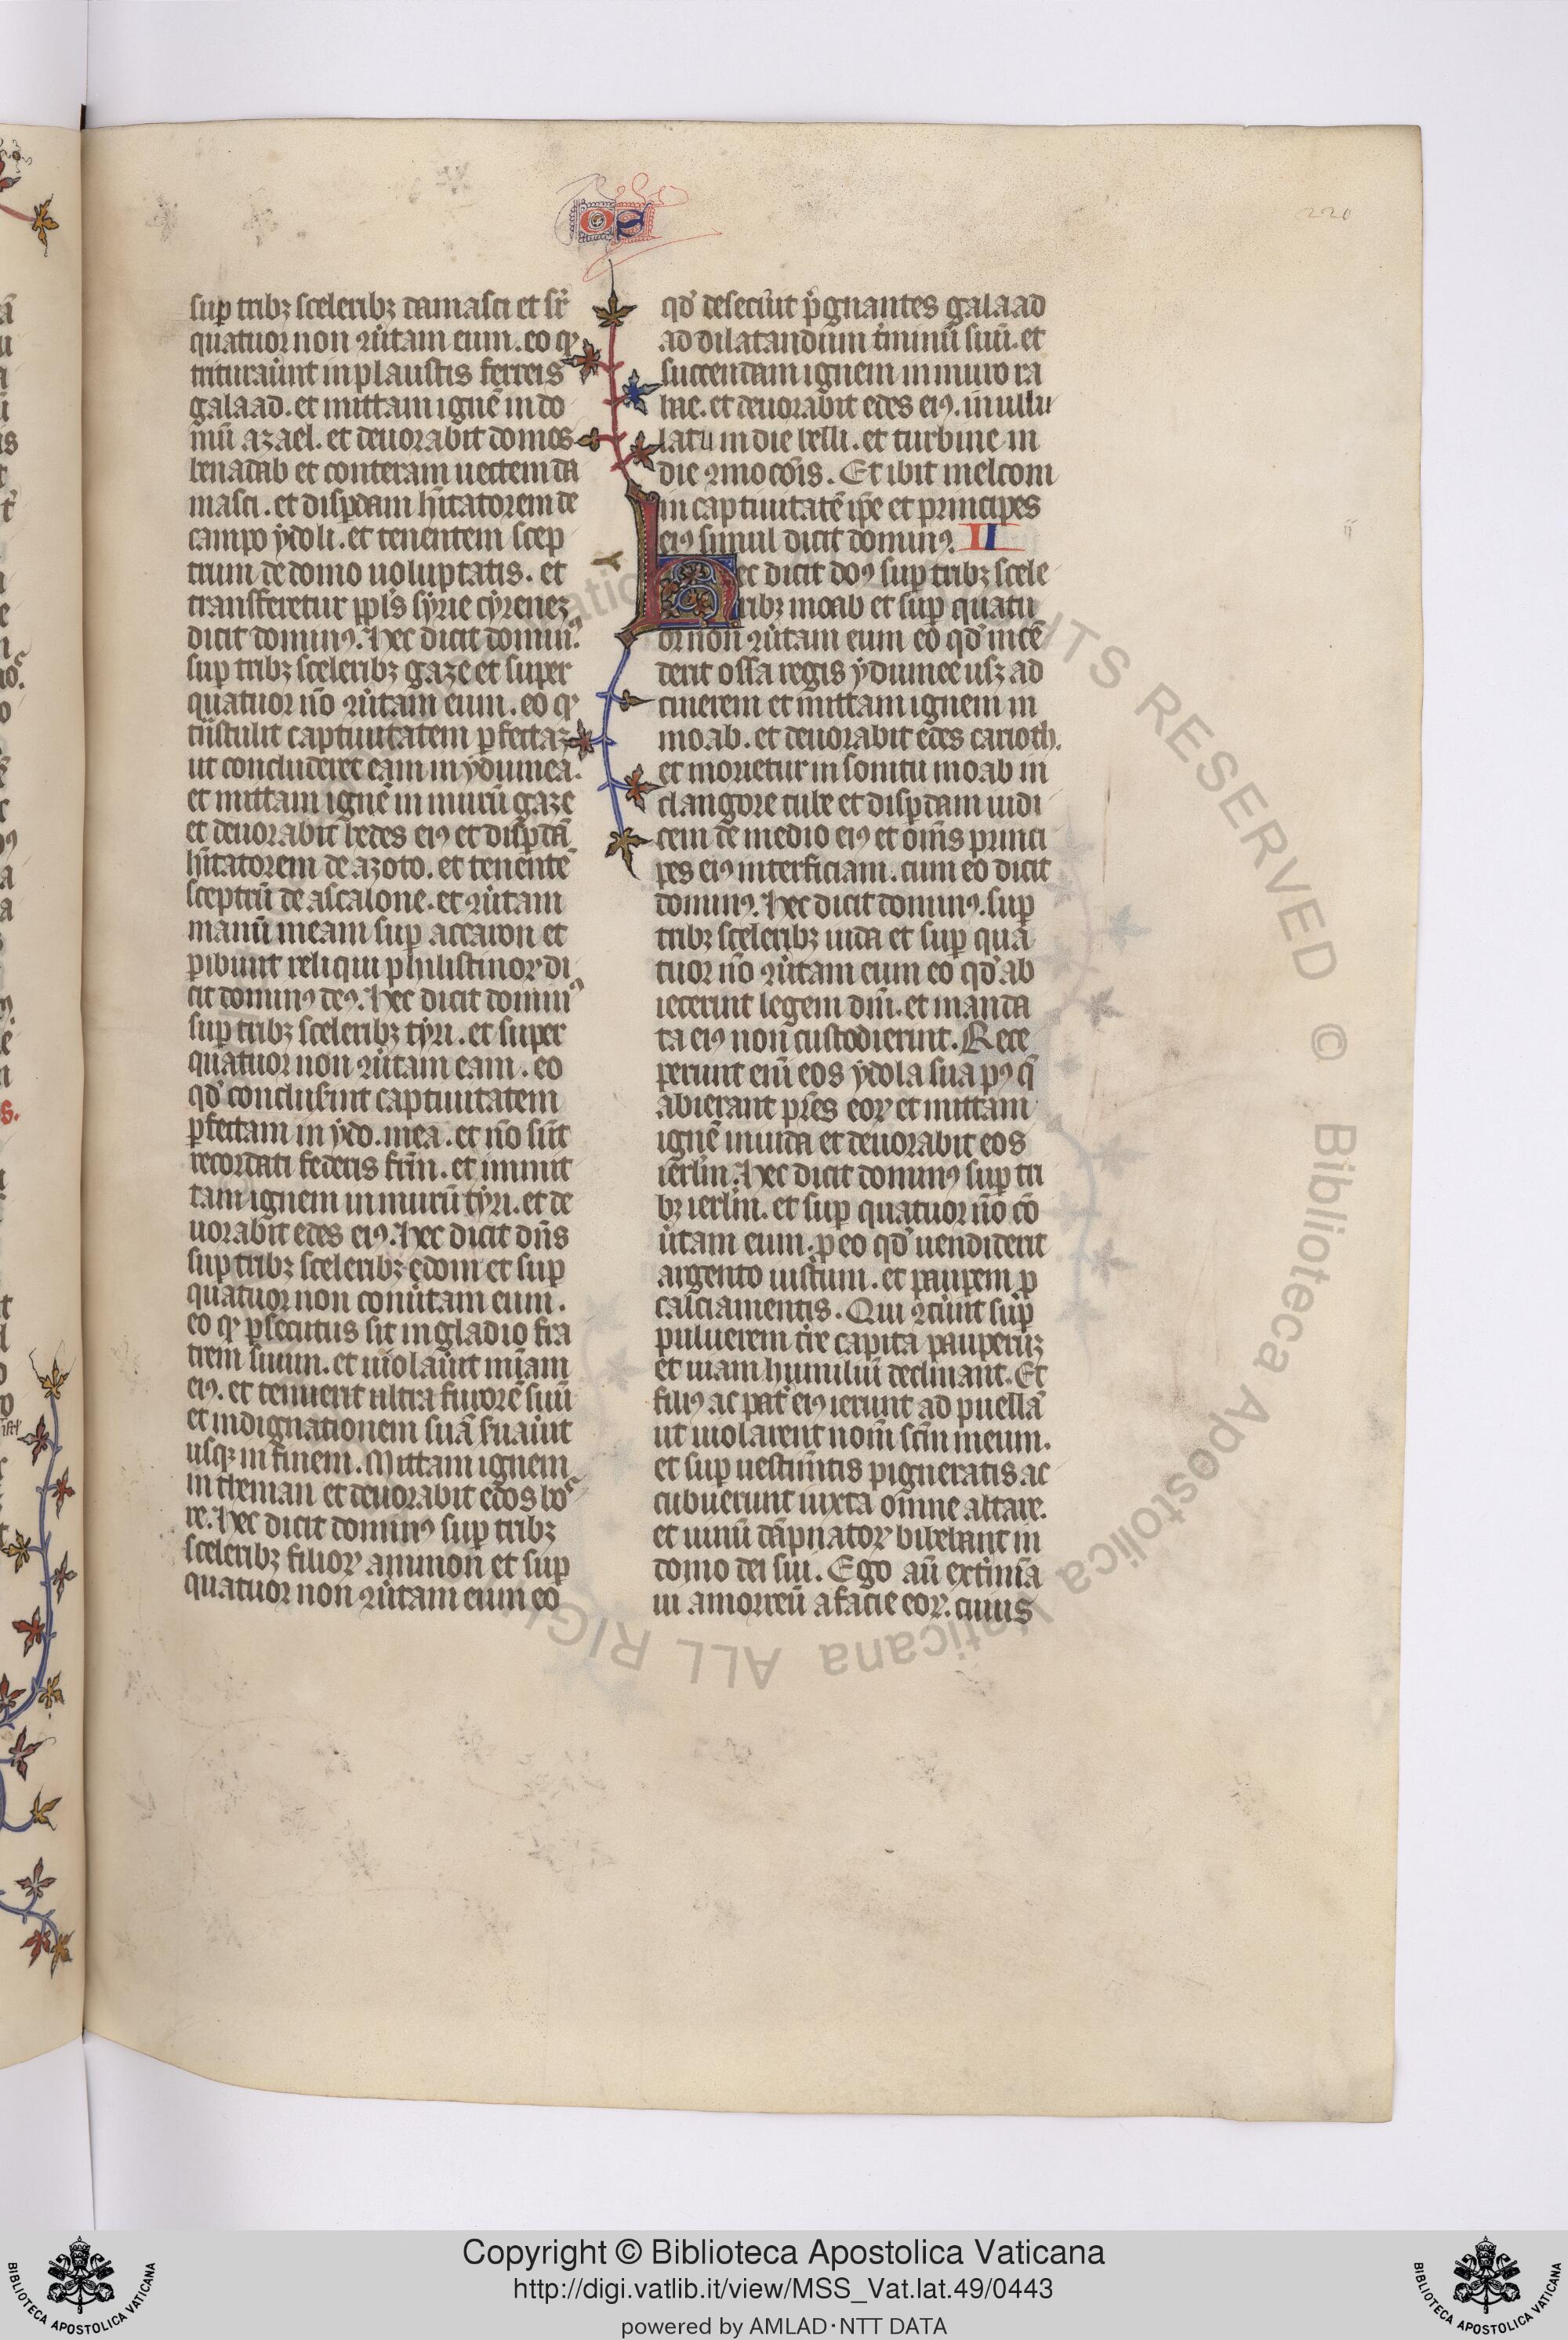 OS
220
sup tribꝫ sceleribꝫ damasci et sr̄
quatuor non ꝯůtam eum. eo ꝙ
trituraůnt in plaustis ferreis
galaad. et mittam ignē in do
mū azael. et deuorabit domos
benadab et conteram uectem da
masci. et dispdam hītatorem de
campo ẏdoli. et tenentem scep
trum de domo uoluptatis. et
transferetur ppl̄s sẏrie cẏreneꝫ
dicit dominꝰ. Hec dicit dominꝰ
sup tribꝫ sceleribꝫ gaze et super
quatuor nō ꝯůtam eum. eo ꝙ
tůstulit captiuitatem ꝑfectaꝫ
ut concluderet eam in ẏdumea.
et mittam ignē in murū gaze
et deuorabit hedes eiꝰ et dispdā
hītatorem de azoto. et tenentē
sceptrū de ascalone. et ꝯůtam
manū meam sup accaron et
ꝑibunt reliqui philistinoꝝ di
cit dominꝰ deꝰ. Hec dicit dominꝰ
sup tribꝫ sceleribꝫ tẏri. et super
quatuor non ꝯůtam eam. eo
qd̕ conclusīnt captiuitatem
ꝑfectam in ẏdo.mea. et nō sūt
recordati federis frm̄. et immit
tam ignem in murū tẏri. et de
uorabit edes eiꝰ. Hec dicit dn̄s
sup tribꝫ sceleribꝫ edom et sup
quatuor non conůtam eum.
eo ꝙ ꝑsecutus sit in gladio fra
trem suum. et uiolaůit mīam
eiꝰ. et tenuerit ultra furorē suū
et indignationem suā suaůit
usqꝫ in finem. Mittam ignem
in theman et deuorabit edos bos
re. Hec dicit dominꝰ sup tribꝫ
sceleribꝫ filioꝝ ammon et sup
quatuor non ꝯůtam eum eo
qd̕ desecůit p̄gnantes galaad
ad dilatandum t̄minū suū. et
succendam ignem in muro ra
bae. et deuorabit edes eiꝰ. in ullu
latu in die belli. et turbine in
die ꝯmoc̄ōis. Et ibit melcom
in captiuitatē ip̄e et principes
eiꝰ simul dicit dominꝰ. II
Hec dicit dōꝰ sup tribꝫ scele
ribꝫ moab et sup quatu
or non ꝯůtam eum eo qd̕ incē
derit ossa regis ẏdumee usꝫ ad
cinerem et mittam ignem in
moab. et deuorabit edes carioth.
et morietur in sonitu moab in
clangore tube et dispdam iudi
cem de medio eiꝰ et om̄s princi
pes eiꝰ interficiam. cum eo dicit
dominꝰ. Hec dicit dominꝰ. sup
tribꝫ sceleribꝫ iuda et sup qua
tuor nō ꝯůtam eum eo qd̕ ab
iecerint legem dn̄i. et manda
ta eiꝰ non custodierint. Rece
perunt enī eos ẏdola sua pꝰ q̄
abierant pr̄es eoꝝ et mittam
ignē in iuda et deuorabit eos
ierl̄m. Hec dicit dominꝰ sup tri
bꝫ ierl̄m. et sup quatuor nō cō
ůtam eum. ꝑ eo qd̕ uendiderit
argento iustum. et pauꝑem ꝑ
calciamentis. Qui ꝯt̄unt sup
puluerem t̄re capita pauperuꝫ
et uiam humiliū declinant. Et
filiꝰ ac pat̄ eiꝰ ierunt ad puellā
ut uiolarent nom̄ sc̄m meum.
et sup uestim̄tis pigneratis ac
cubuerunt iuxta om̄ne altare.
et uinū dāpnatoꝝ bibebant in
domo dei sui. Ego aū extim̄ia
ui amorreū a facie eoꝝ. cuius
Copyright © Biblioteca Apostolica Vaticana
http://digi.vatlib.it/view/MSS_Vat.lat.49/0443
powered by AMLAD·NTT DATA